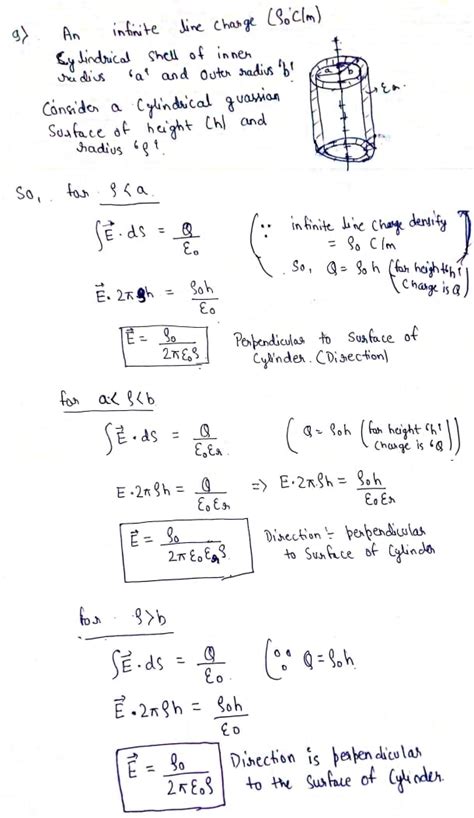 9) An infinite line charge (ρ₀ C/m)
Cylindrical shell of inner
radius 'a' and outer radius 'b'.
Consider a Cylindrical guassian
Surface of height (h) and
radius 'ρ'.
a b
εr
So, for ρ < a.
∫E⃗ . ds = Q/ε₀
(∵ infinite line charge density
= ρ₀ C/m
So, Q = ρ₀h (for height 'h'
charge is Q))
E⃗. 2πρh = ρ₀h/ε₀
E⃗ = ρ₀/2πε₀ρ
Perpendicular to Surface of
Cylinder. (Direction)
for a < ρ < b
∫E⃗ . ds = Q/ε₀εr
(Q = ρ₀h (for height 'h'
charge is 'Q))
E . 2πρh = Q/ε₀εr => E . 2πρh = ρ₀h/ε₀εr
E⃗ = ρ₀/2πε₀εrρ
Direction :- perpendicular
to Surface of Cylinder
for ρ > b
∫E⃗ . ds = Q/ε₀. (∵ Q = ρ₀h.
E⃗ . 2πρh = ρ₀h/ε₀
E⃗ = ρ₀/2πε₀ρ
Direction is perpendicular
to the Surface of Cylinder.